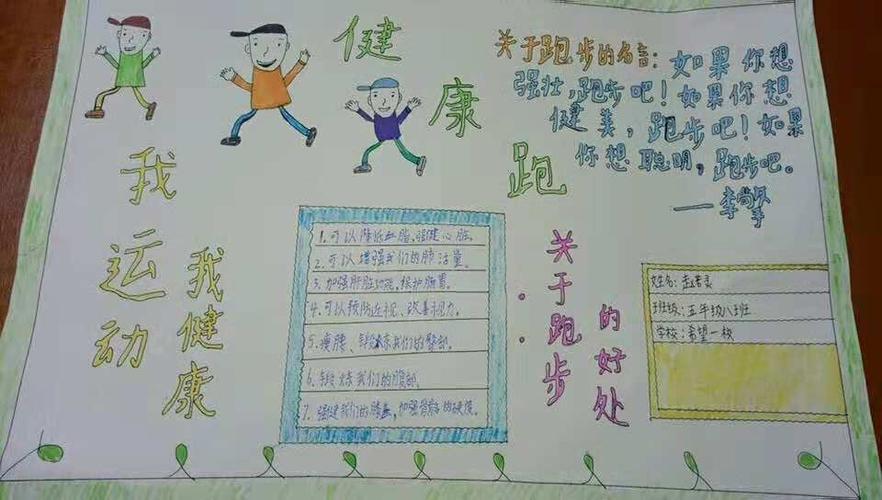 健康跑
关于跑步的名言：如果你想
强壮，跑步吧！如果你想
健美，跑步吧！如果
你想聪明，跑步吧。
我运动
我健康
1.可以降低血脂、强健心脏。
2.可以增强我们的肺活量。
3.加强肝脏功能、保护肠胃。
4.可以预防近视、改善视力。
5.瘦腰、锻炼我们的臀部。
6.锻炼我们的腹部。
7.强健我们的膝盖，加强骨骼的硬度。
关于跑步
的好处
姓名：
班级：五年级八班
学校：希望一校